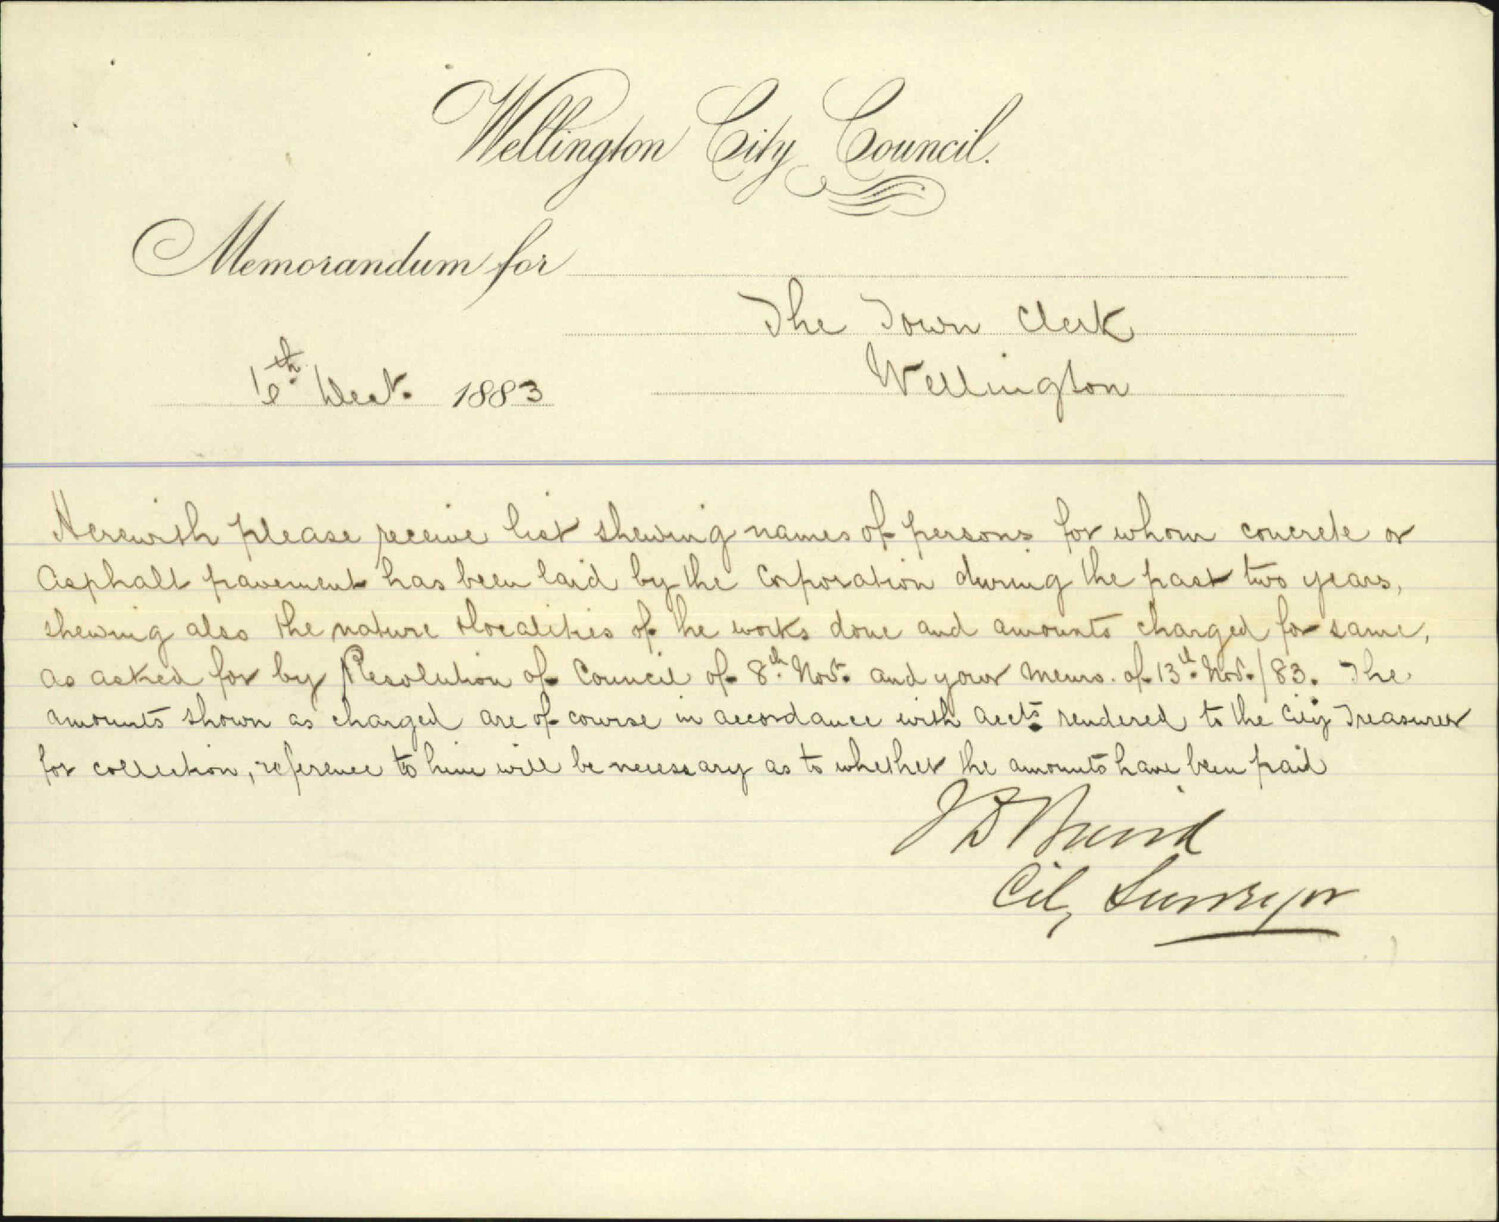 Wellington City Council.
Memorandum for
The Town Clerk
6th Dect. 1883
Wellington
Herewith please receive list shewing names of persons for whom concrete or
asphalt pavement has been laid by the Corporation during the past two years,
shewing also the nature & localities of the works done and amounts charged for same,
as asked for by Resolution of Council of 8th. Novr. and your memo. of 13th. Novr./83. The
amounts shown as charged are of course in accordance with accts. rendered to the City Treasurer
for collection, reference to him will be necessary as to whether the amounts have been paid
J D Baird
City Surveyor